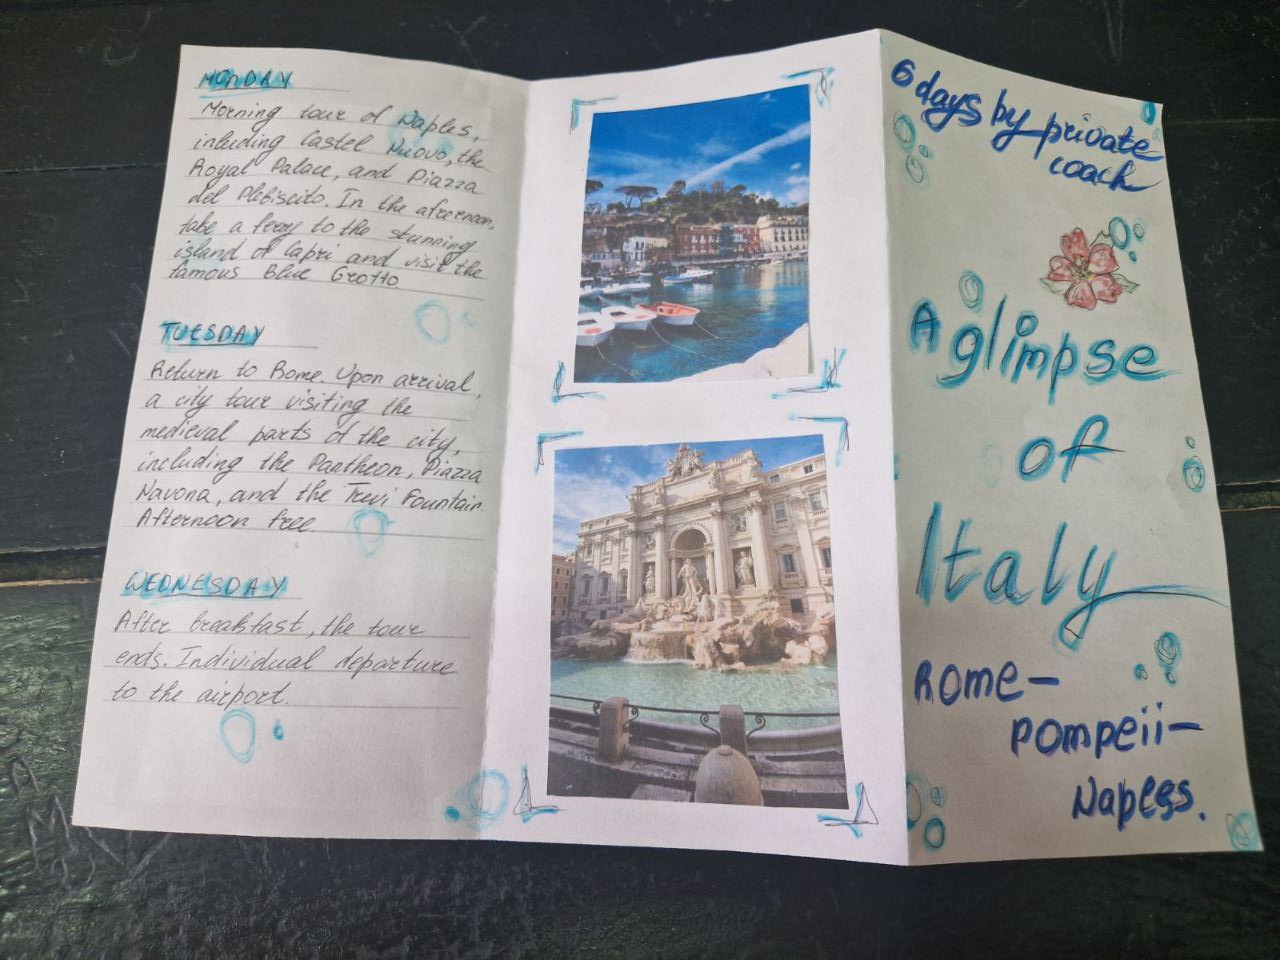 MONDAY
Morning tour of Naples,
including Castel Nuovo, the
Royal Palace, and Piazza
del Plebiscito. In the afternoon,
take a ferry to the stunning
island of Capri and visit the
famous Blue Grotto.
TUESDAY
Return to Rome. Upon arrival,
a city tour visiting the
medieval parts of the city,
including the Pantheon, Piazza
Navona, and the Trevi Fountain.
Afternoon free.
WEDNESDAY
After breakfast, the tour
ends. Individual departure
to the airport.
6 days by private
coach
A glimpse
of
Italy
Rome-
Pompeii-
Naples.